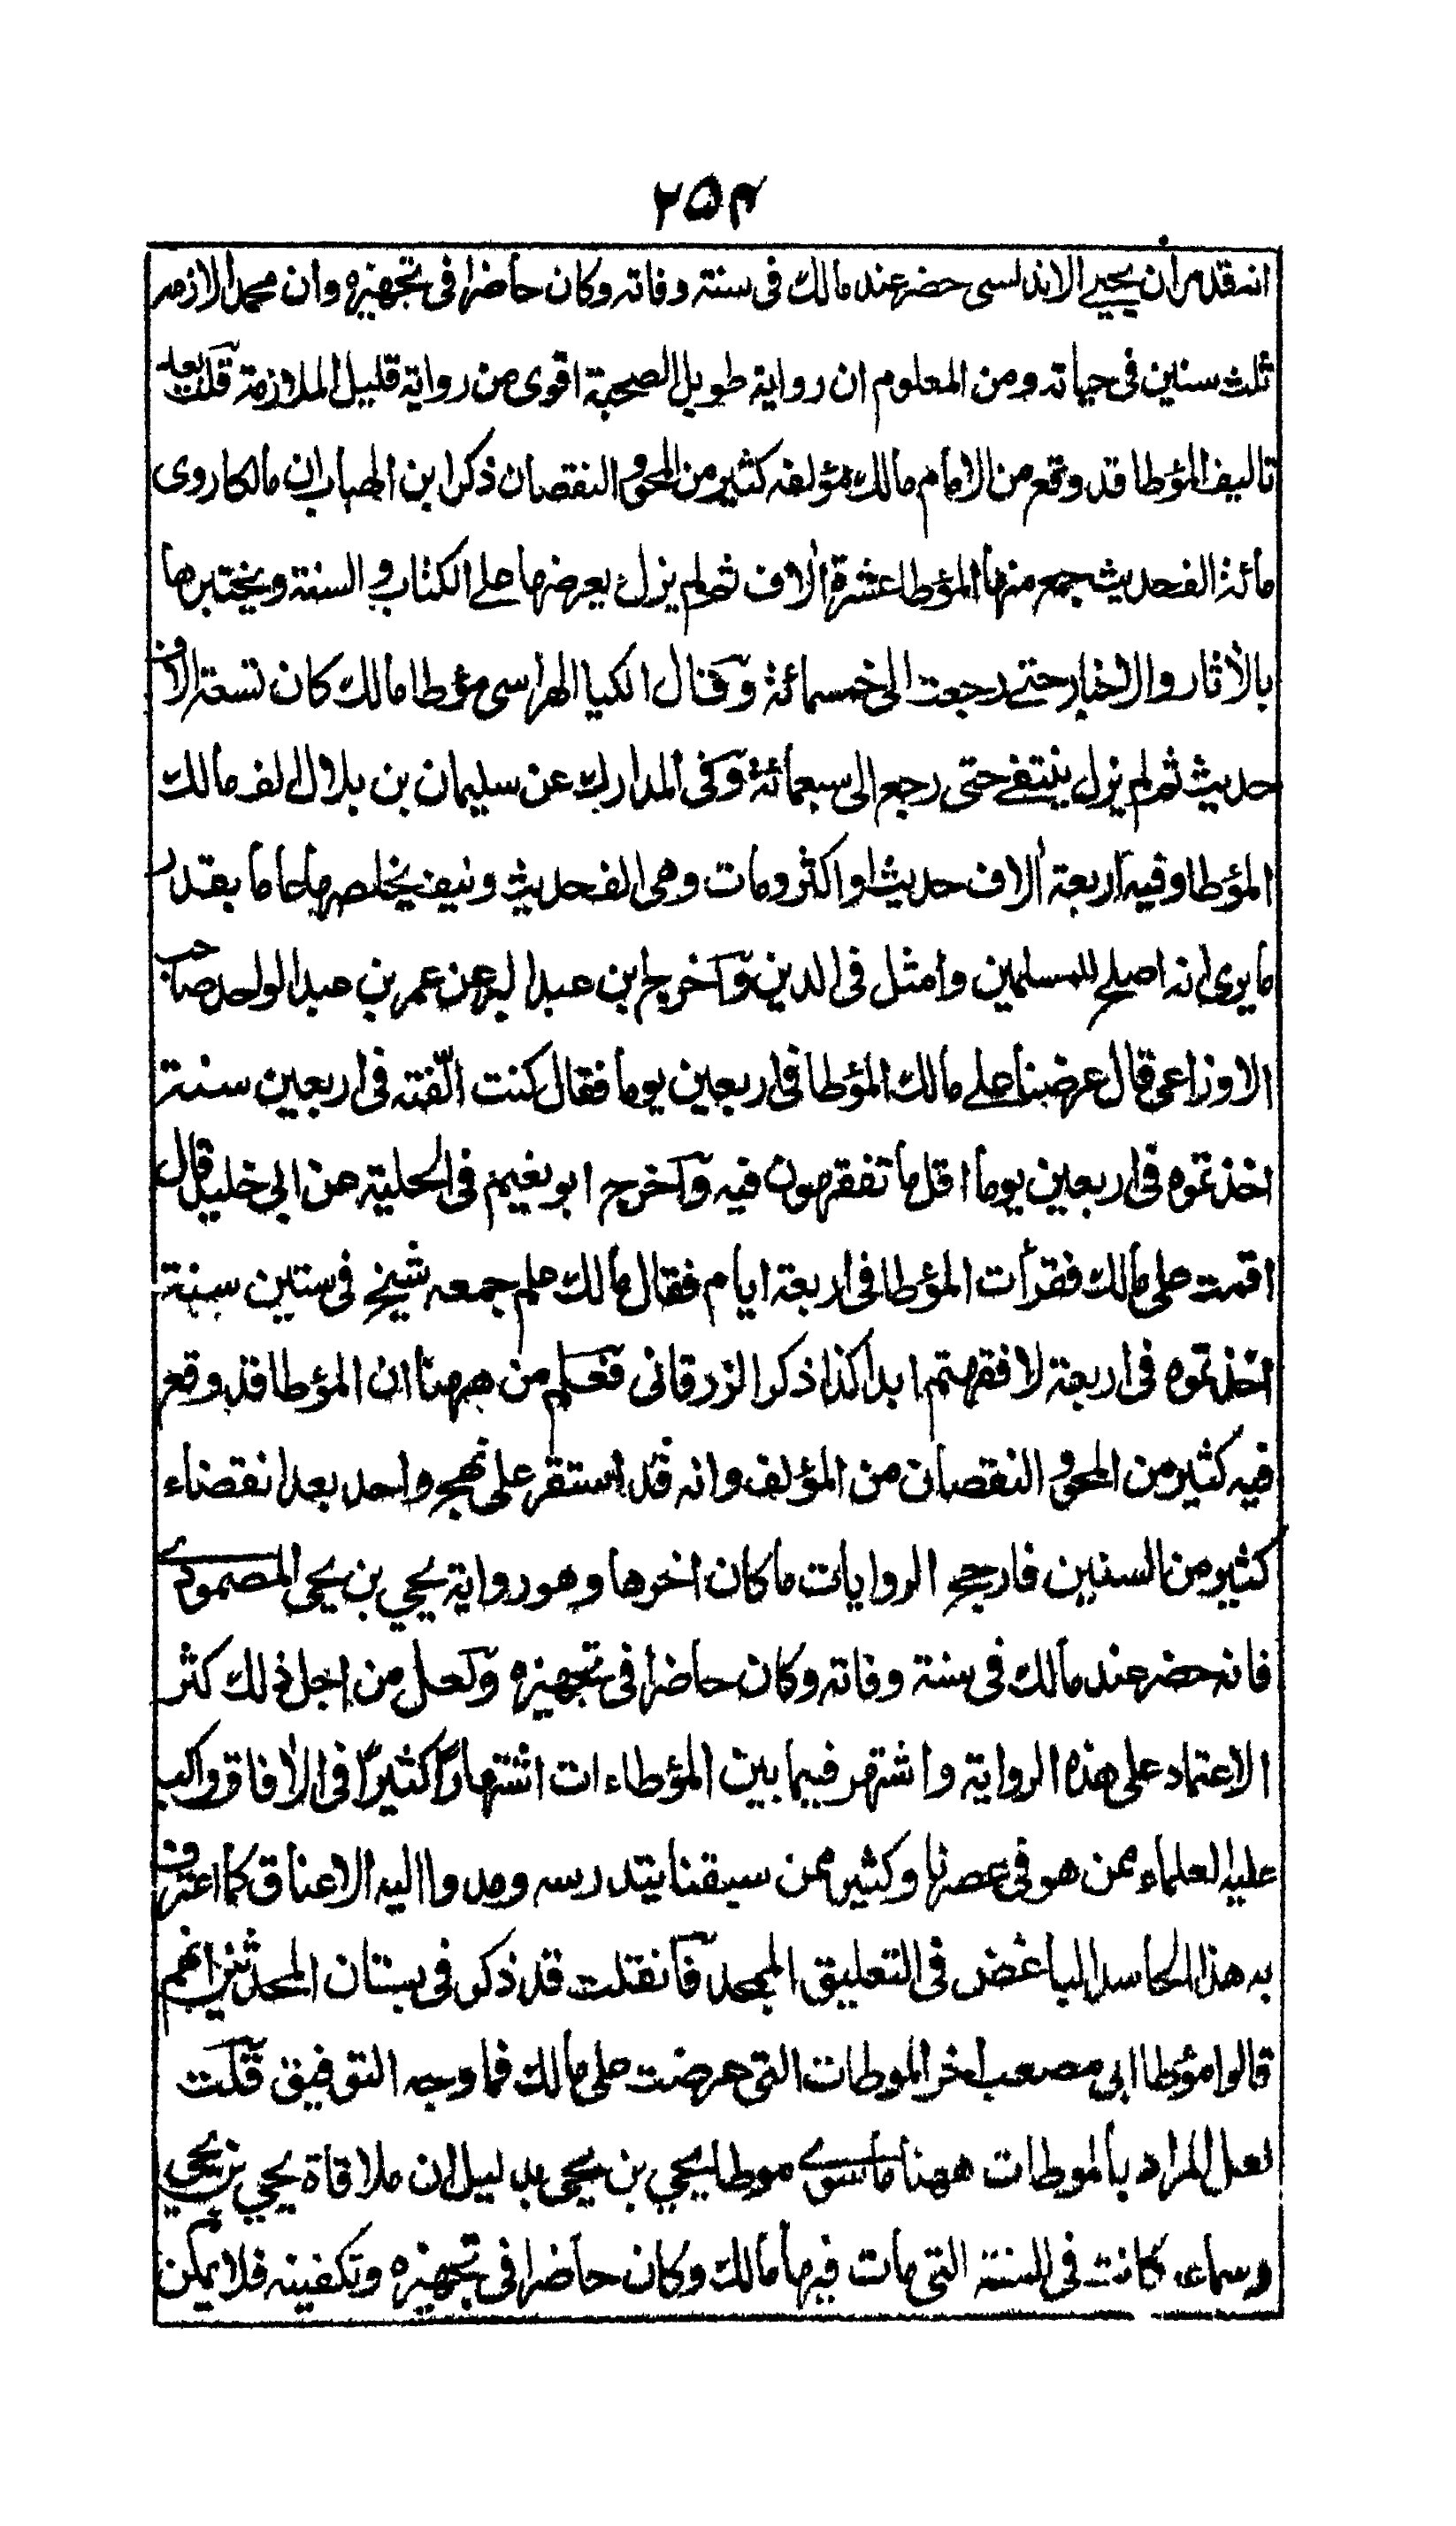 ٢٥٤
انه قد مر ان يحيى الاندلسى حضر عند مالك فى سنة وفاته وكان حاضرا فى تجهيزه وان محمد الازمه
ثلث سنين فى حياته ومن المعلوم ان رواية طويل الصحبة اقوى من رواية قليل الملازمة قلت بعد
تاليف المؤطا قد وقع من الامام مالك مؤلفه كثير من المحو و النقصان ذكر ابن الهباب ان مالكا روى
مائة الف حديث جمع منها المؤطا عشرة الاف ثم لم يزل يعرضها على الكتاب و السنة ويختبرها
بالأثار والاخبار حتى رجعت الى خمسمائة وقال الكيا الهراسى مؤطا مالك كان تسعة الاف
حديث ثم لم يزل ينتقى حتى رجع الى سبعمائة وفى المدارك عن سليمان بن بلال الف مالك
المؤطا وفيه اربعة ألاف حديث او اكثر ومات وهى الف حديث ونيف يخلصها عاما بقدر
ما يرى انه اصلح للمسلمين وامثل فى الدين واخرج ابن عبد البر عن عمر بن عبد الواحد صاحب
الاوزاعى قال عرضنا على مالك المؤطا فى اربعين يوما فقال كنت الّفته فى اربعين سنة
اخذتموه فى اربعين يوما اقل ما تفقهون فيه واخرج ابو نعيم فى الحلية عن ابى خليل قال
اقمت على مالك فقرأت المؤطا فى اربعة ايام فقال مالك علم جمعه شيخ فى ستين سنة
اخذتموه فى اربعة لا فقهتم ابدا كذا ذكر الزرقانى فعلم من ههنا ان المؤطا قد وقع
فيه كثير من المحو و النقصان من المؤلف وانه قد استقر على نهج واحد بعد انقضاء
كثير من السنين فارجح الروايات ما كان اخرها وهو رواية يحيى بن يحيى المصمودى
فانه حضر عند مالك فى سنة وفاته وكان حاضرا فى تجهيزه ولعل من اجل ذلك كثر
الاعتماد على هذه الرواية واشتهر فيما بين المؤطاءات اشتهارًا كثيرًا فى الأفاق واكب
عليه العلماء ممن هو فى عصرنا وكثير ممن سبقنا بتدرسه ومدوا اليه الاعناق كما اعترف
به هذا الحاسد الباغض فى التعليق الممجد فان قلت قد ذكر فى بستان المحدثين انهم
قالوا مؤطا ابى مصعب اخر الموطات التى عرضت على مالك فما وجه التوفيق قلت
لعل المراد بالموطات ههنا ما سوى موطا يحيى بن يحيى بدليل ان ملاقاة يحيى بن يحيى
وسماعه كانت فى السنة التى مات فيها مالك وكان حاضرا فى تجهيزه وتكفينه فلا يمكن